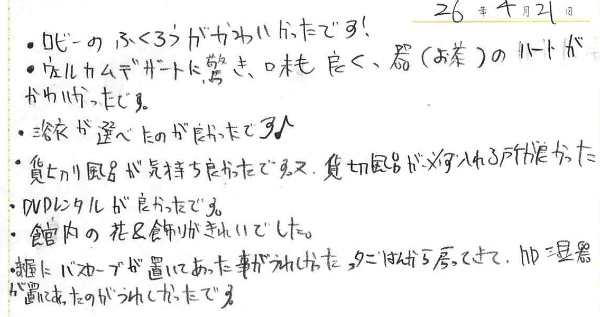 26年4月21日
・ロビーのふくろうがかわいかったです!
・ウェルカムデザートに驚き、味も良く、器(お茶)のハートが
かわいかったです。
・浴衣が選べたのが良かったです♪
・貸切り風呂が気持ち良かったです。又、貸切風呂が必ず入れる所が良かった
・DVDレンタルが良かったです。
・館内の花&飾りがきれいでした。
・部屋にバスローブが置いてあった事がうれしかった。夕ごはんから戻ってきて、加湿器
が置いてあったのがうれしかったです。